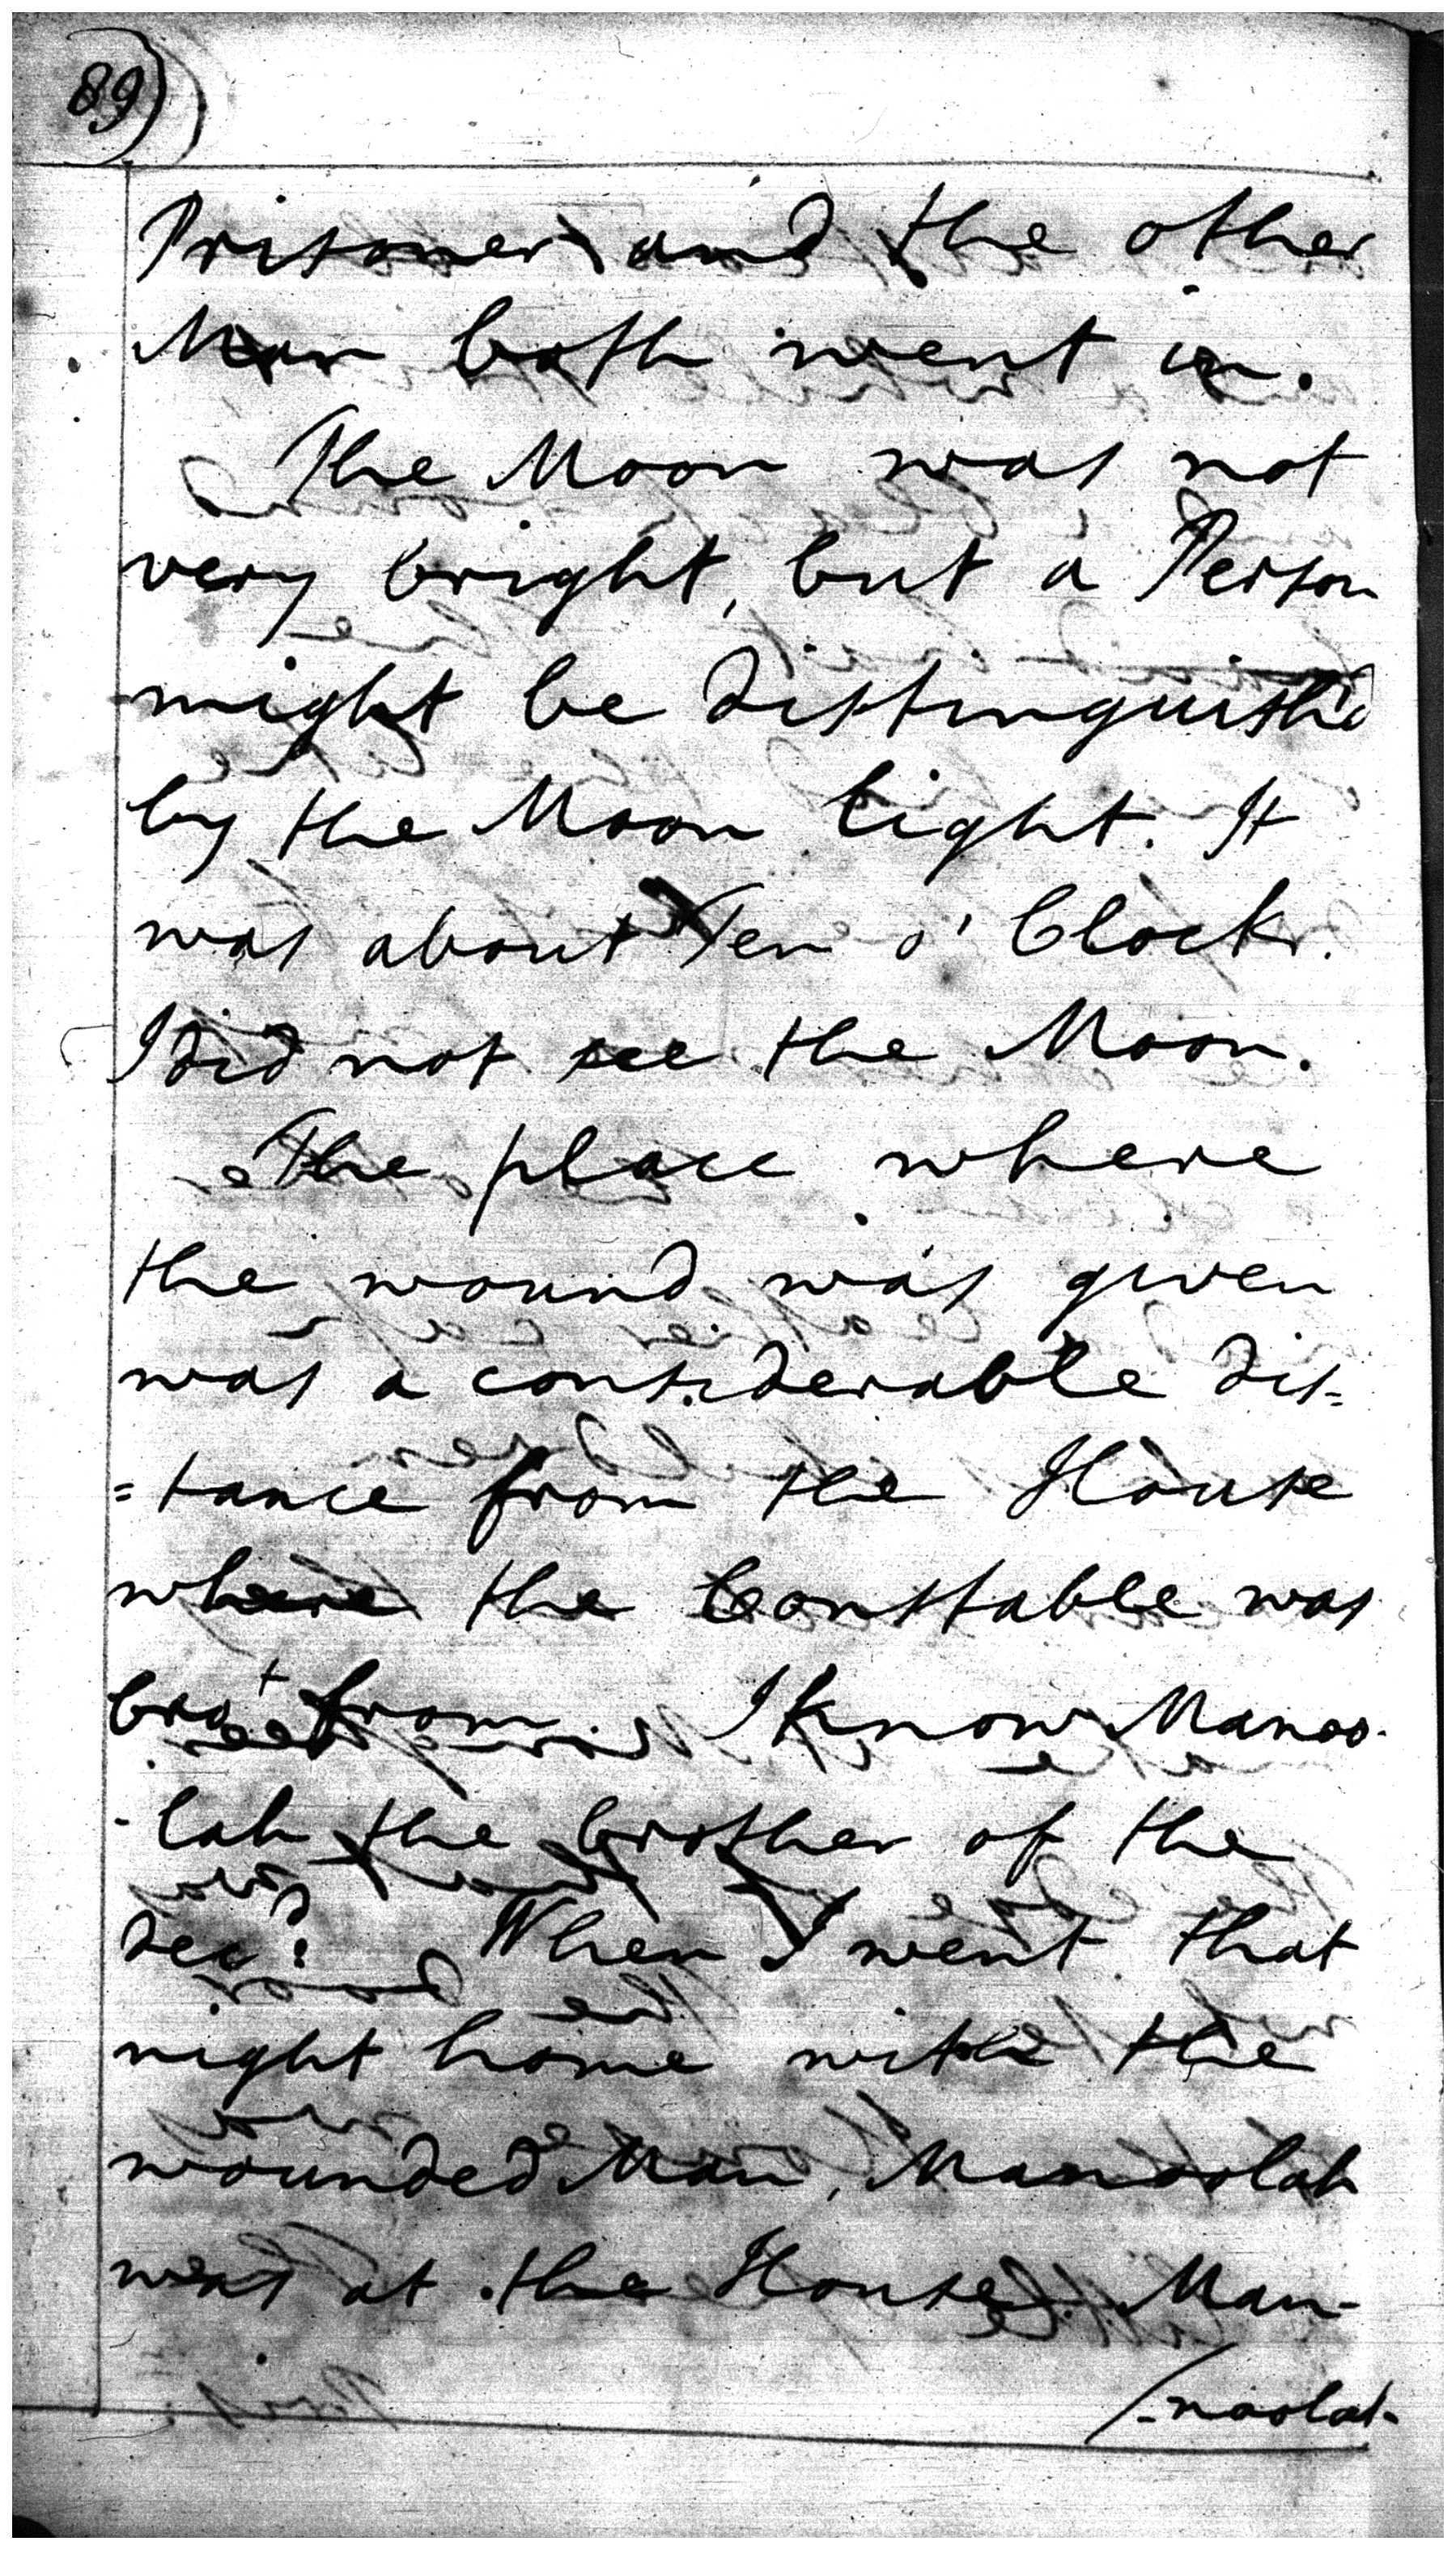 89)
Prisoner and the other
Man both went in.
The Moon was not
very bright, but a Person
might be distinguish'd
by the Moon light. It
was about Ten o' Clock.
I did not see the Moon.
The place where
the wound was given
was a considerable dis=
=tance from the House
where the Constable was
bro.t from. I know Manoo-
-lah the brother of the
dec.d When I went that
night home with the
wounded Man, Manoolah
was at the House. Man-
/-noolah-